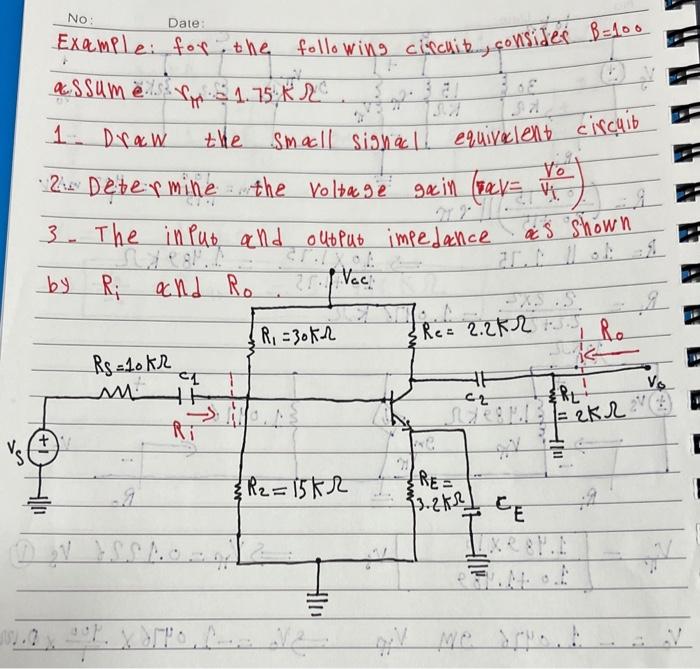 No: Date:
Example: for the following circuit, consider B=100
assume rπ = 1.75 KΩ.
1- Draw the small signal equivalent circuit
2- Determine the voltage gain (av= Vo/Vi)
3- The input and output impedance as shown
by Ri and Ro.
Vcc
R1=30KΩ Rc= 2.2KΩ Ro
Rs=10KΩ C1 C2 Vo
Ri RL = 2KΩ
Vs + -
R2=15KΩ RE= 3.2KΩ CE